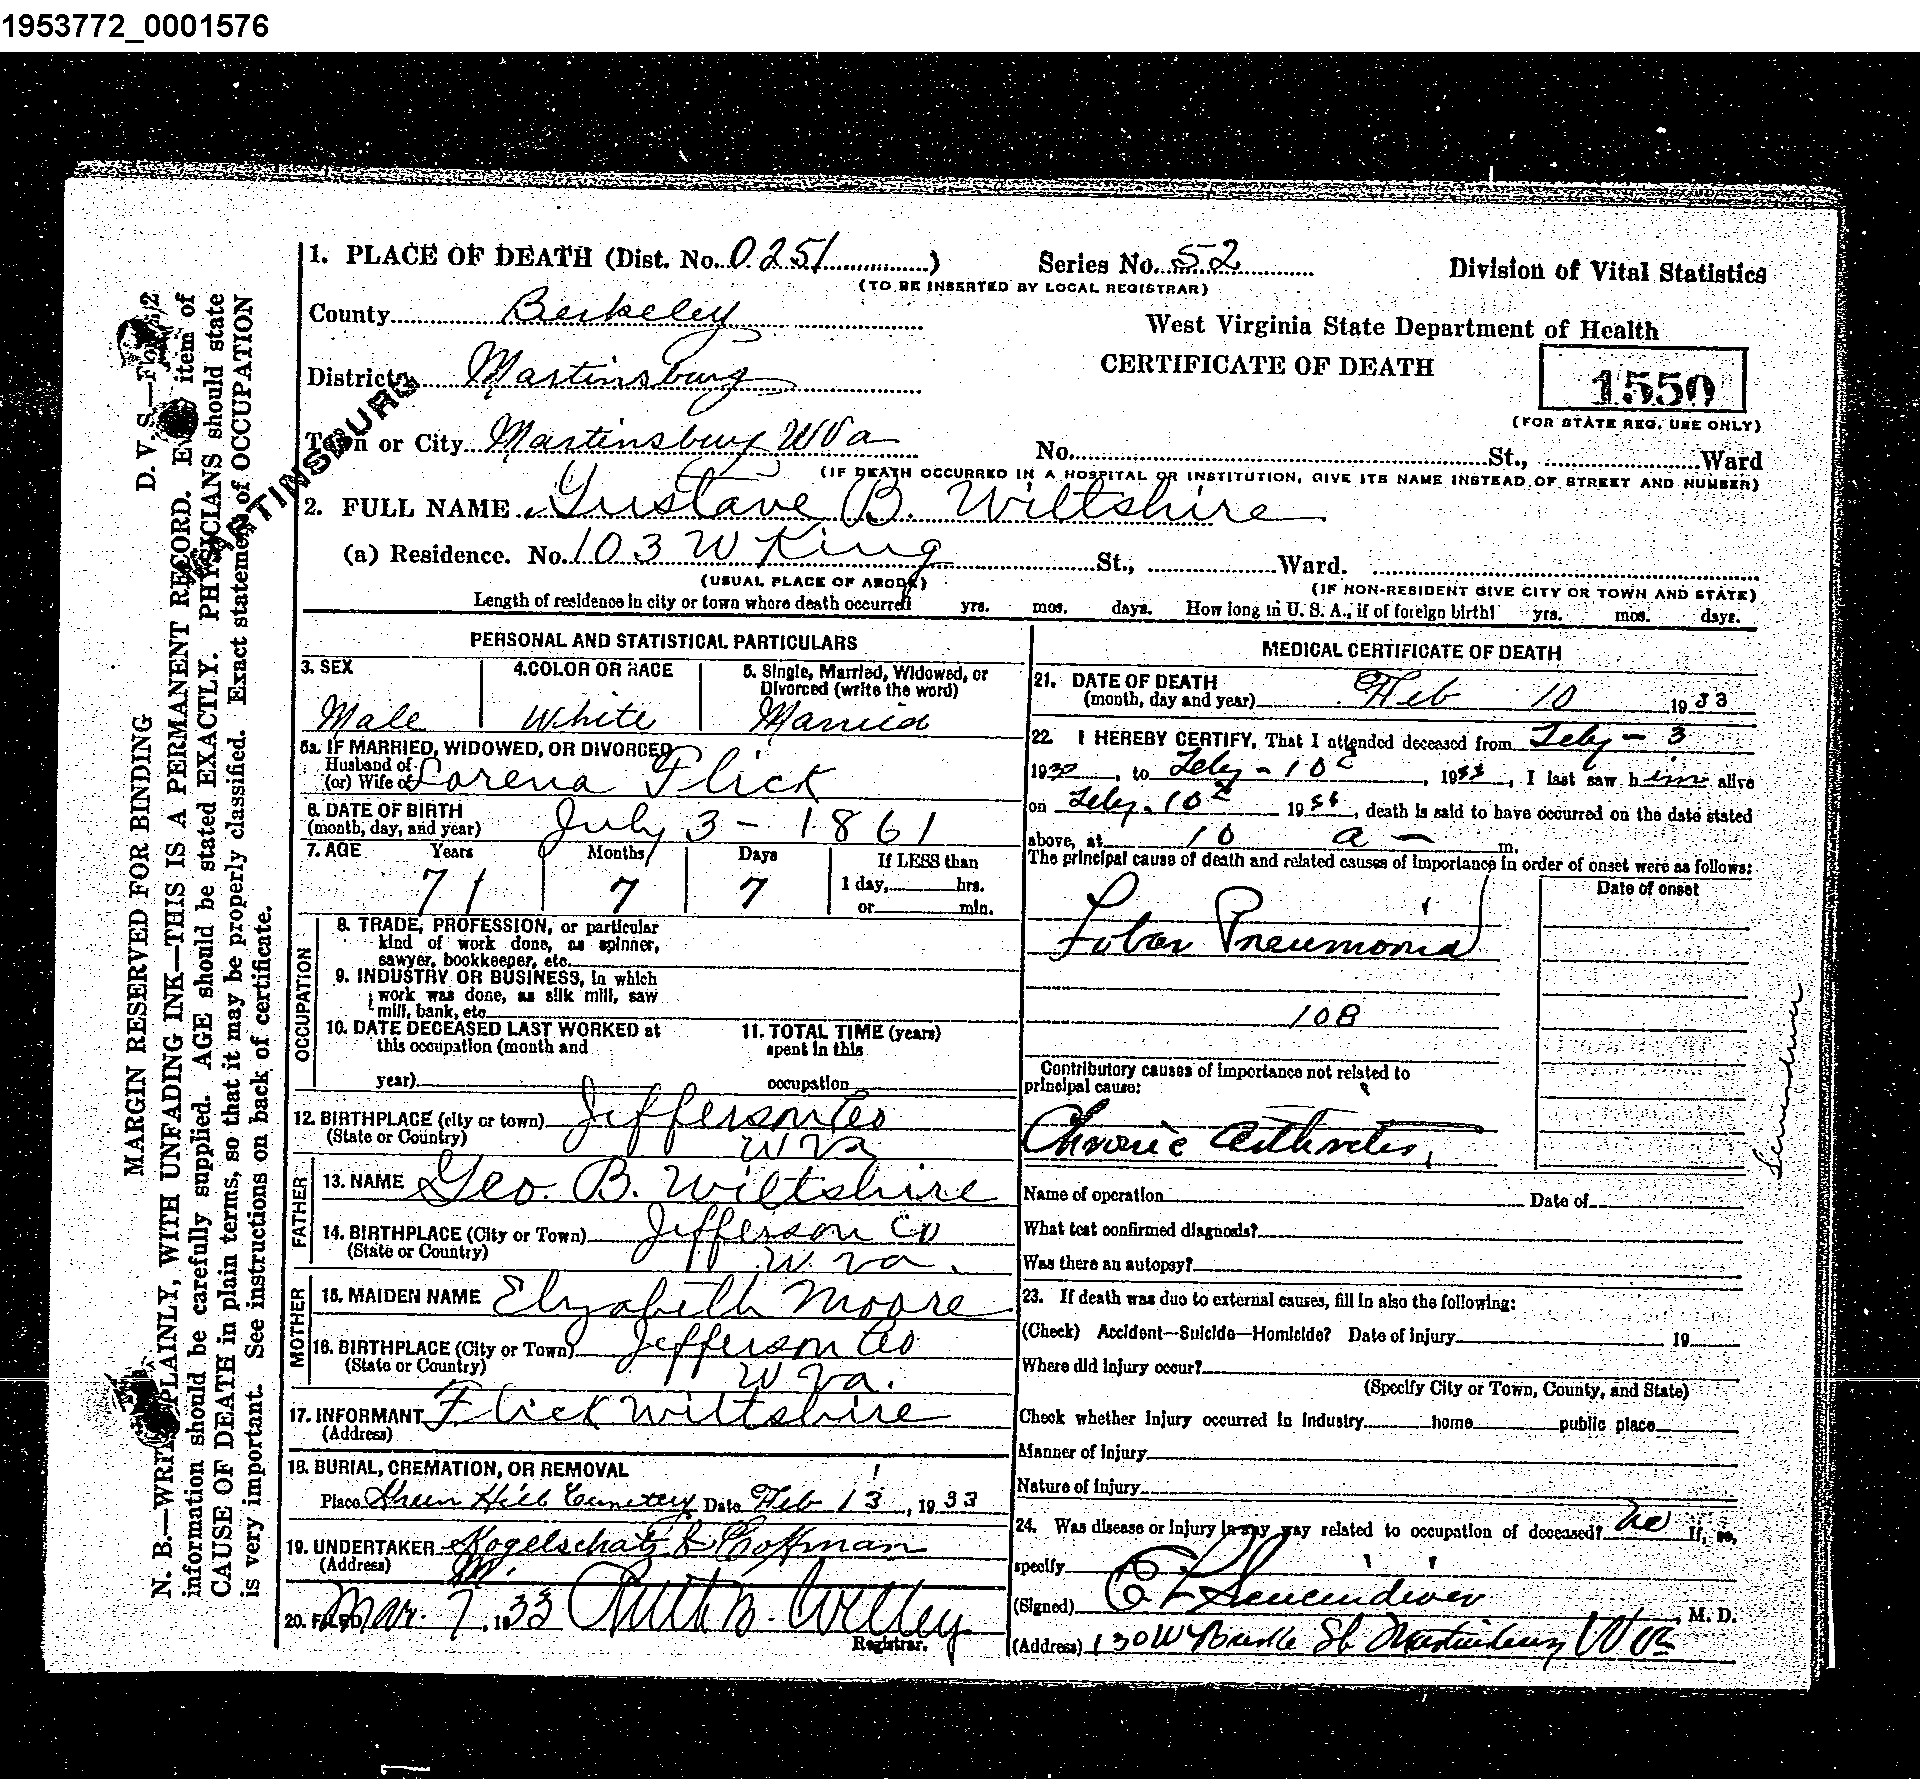 1953772_0001576
1. PLACE OF DEATH (Dist. No. 0251 ) Series No. 52 Division of Vital Statistics
(TO BE INSERTED BY LOCAL REGISTRAR)
County Berkeley
West Virginia State Department of Health
CERTIFICATE OF DEATH
District Martinsburg
1550
(FOR STATE REG. USE ONLY)
Town or City Martinsburg W Va No. St., Ward
(IF DEATH OCCURRED IN A HOSPITAL OR INSTITUTION, GIVE ITS NAME INSTEAD OF STREET AND NUMBER)
2. FULL NAME Gustave B. Wiltshire
(a) Residence. No. 103 W King St., Ward.
(USUAL PLACE OF ABODE) (IF NON-RESIDENT GIVE CITY OR TOWN AND STATE)
Length of residence in city or town where death occurred yrs. mos. days. How long in U. S. A., if of foreign birth? yrs. mos. days.
PERSONAL AND STATISTICAL PARTICULARS
3. SEX 4. COLOR OR RACE 5. Single, Married, Widowed, or
Divorced (write the word)
Male White Married
5a. IF MARRIED, WIDOWED, OR DIVORCED
Husband of
(or) Wife of Lorena Flick
6. DATE OF BIRTH
(month, day, and year) July 3 - 1861
7. AGE Years Months Days If LESS than
71 7 7 1 day, hrs.
or min.
OCCUPATION
8. TRADE, PROFESSION, or particular
kind of work done, as spinner,
sawyer, bookkeeper, etc.
9. INDUSTRY OR BUSINESS, in which
work was done, as silk mill, saw
mill, bank, etc
10. DATE DECEASED LAST WORKED at 11. TOTAL TIME (years)
this occupation (month and spent in this
year) occupation
12. BIRTHPLACE (city or town) Jefferson Co
(State or Country) W Va
FATHER
13. NAME Geo. B. Wiltshire
14. BIRTHPLACE (City or Town) Jefferson Co
(State or Country) W. Va.
MOTHER
15. MAIDEN NAME Elyzabeth Moore
16. BIRTHPLACE (City or Town) Jefferson Co
(State or Country) W Va.
17. INFORMANT Flick Wiltshire
(Address)
18. BURIAL, CREMATION, OR REMOVAL
Place Green Hill Cemetery Date Feb 13, 1933
19. UNDERTAKER Kogelschatz & Hoffman
(Address) M.
20. FILED Mar. 7. 1933
Registrar.
MEDICAL CERTIFICATE OF DEATH
21. DATE OF DEATH
(month, day and year) Feb 10 1933
22. I HEREBY CERTIFY, That I attended deceased from Feby - 3
1933, to Feby - 10, 1933, I last saw him alive
on Feby. 10 19, death is said to have occurred on the date stated
above, at 10 a - m.
The principal cause of death and related causes of importance in order of onset were as follows:
Date of onset
Lobar Pneumonia
108
Contributory causes of importance not related to
principal cause:
Chronic arthritis,
Name of operation Date of
What test confirmed diagnosis?
Was there an autopsy?
23. If death was due to external causes, fill in also the following:
(Check) Accident—Suicide—Homicide? Date of injury 19
Where did injury occur?
(Specify City or Town, County, and State)
Check whether injury occurred in industry home public place
Manner of injury
Nature of injury
24. Was disease or injury in any way related to occupation of deceased? no If, so,
specify
(Signed) M. D.
(Address) 130 W Burke St Martinsburg W Va
MARTINSBURG
D. V. S.—
MARGIN RESERVED FOR BINDING
N. B.—WRITE PLAINLY, WITH UNFADING INK—THIS IS A PERMANENT RECORD. Every item of
information should be carefully supplied. AGE should be stated EXACTLY. PHYSICIANS should state
CAUSE OF DEATH in plain terms, so that it may be properly classified. Exact statement of OCCUPATION
is very important. See instructions on back of certificate.